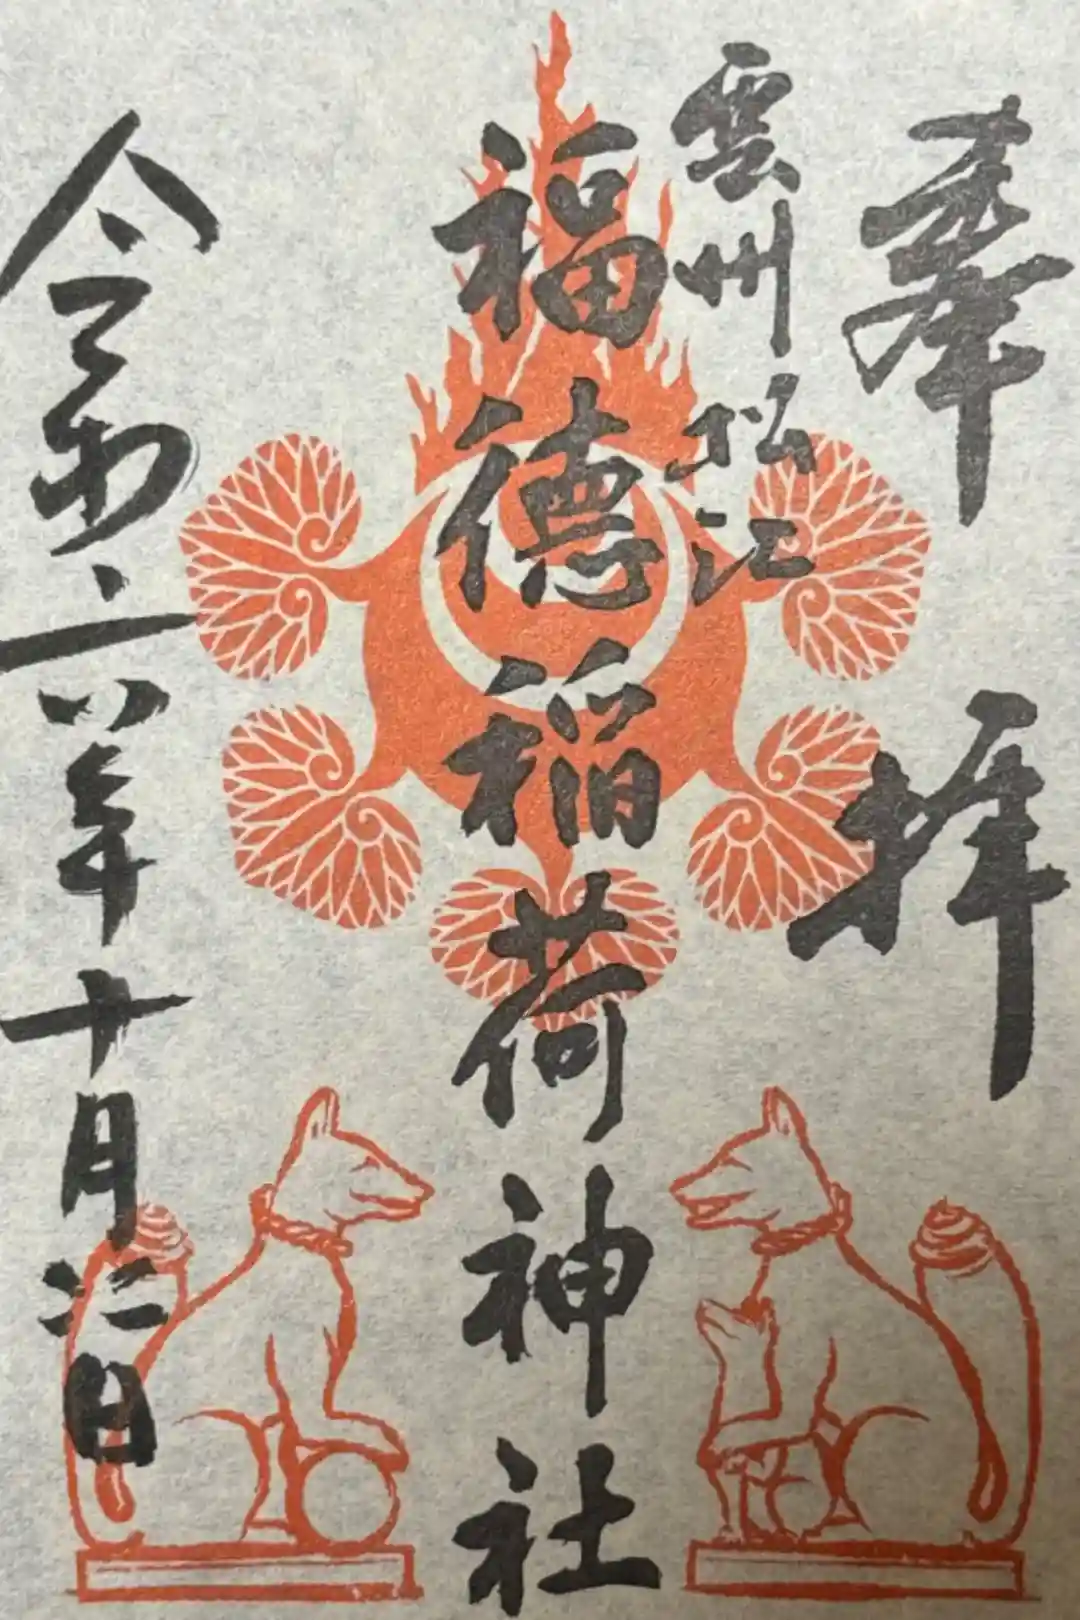 奉拝
雲州松江
福徳稲荷神社
令和六年十月二日